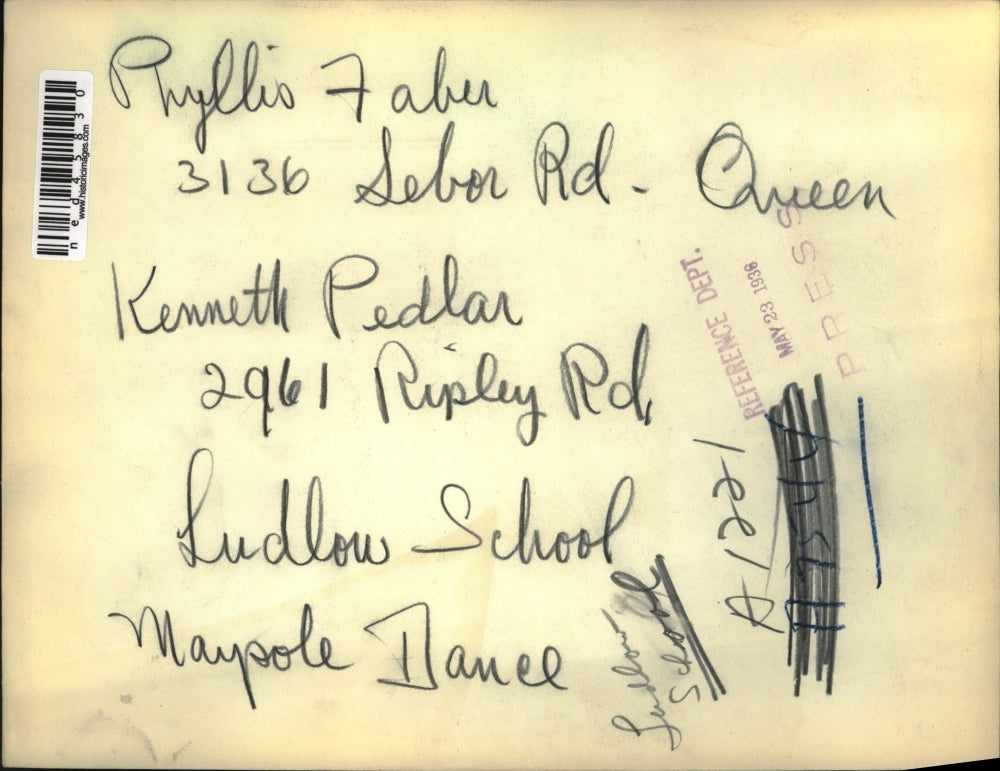 Phyllis Faber
3136 Sebor Rd. Queen
Kenneth Pedlar
2961 Ripley Rd.
Ludlow School
Maypole Dance
Ludlow
School
A-1221
REFERENCE DEPT.
MAY 23 1936
PRESS
ned45830
www.historicimages.com